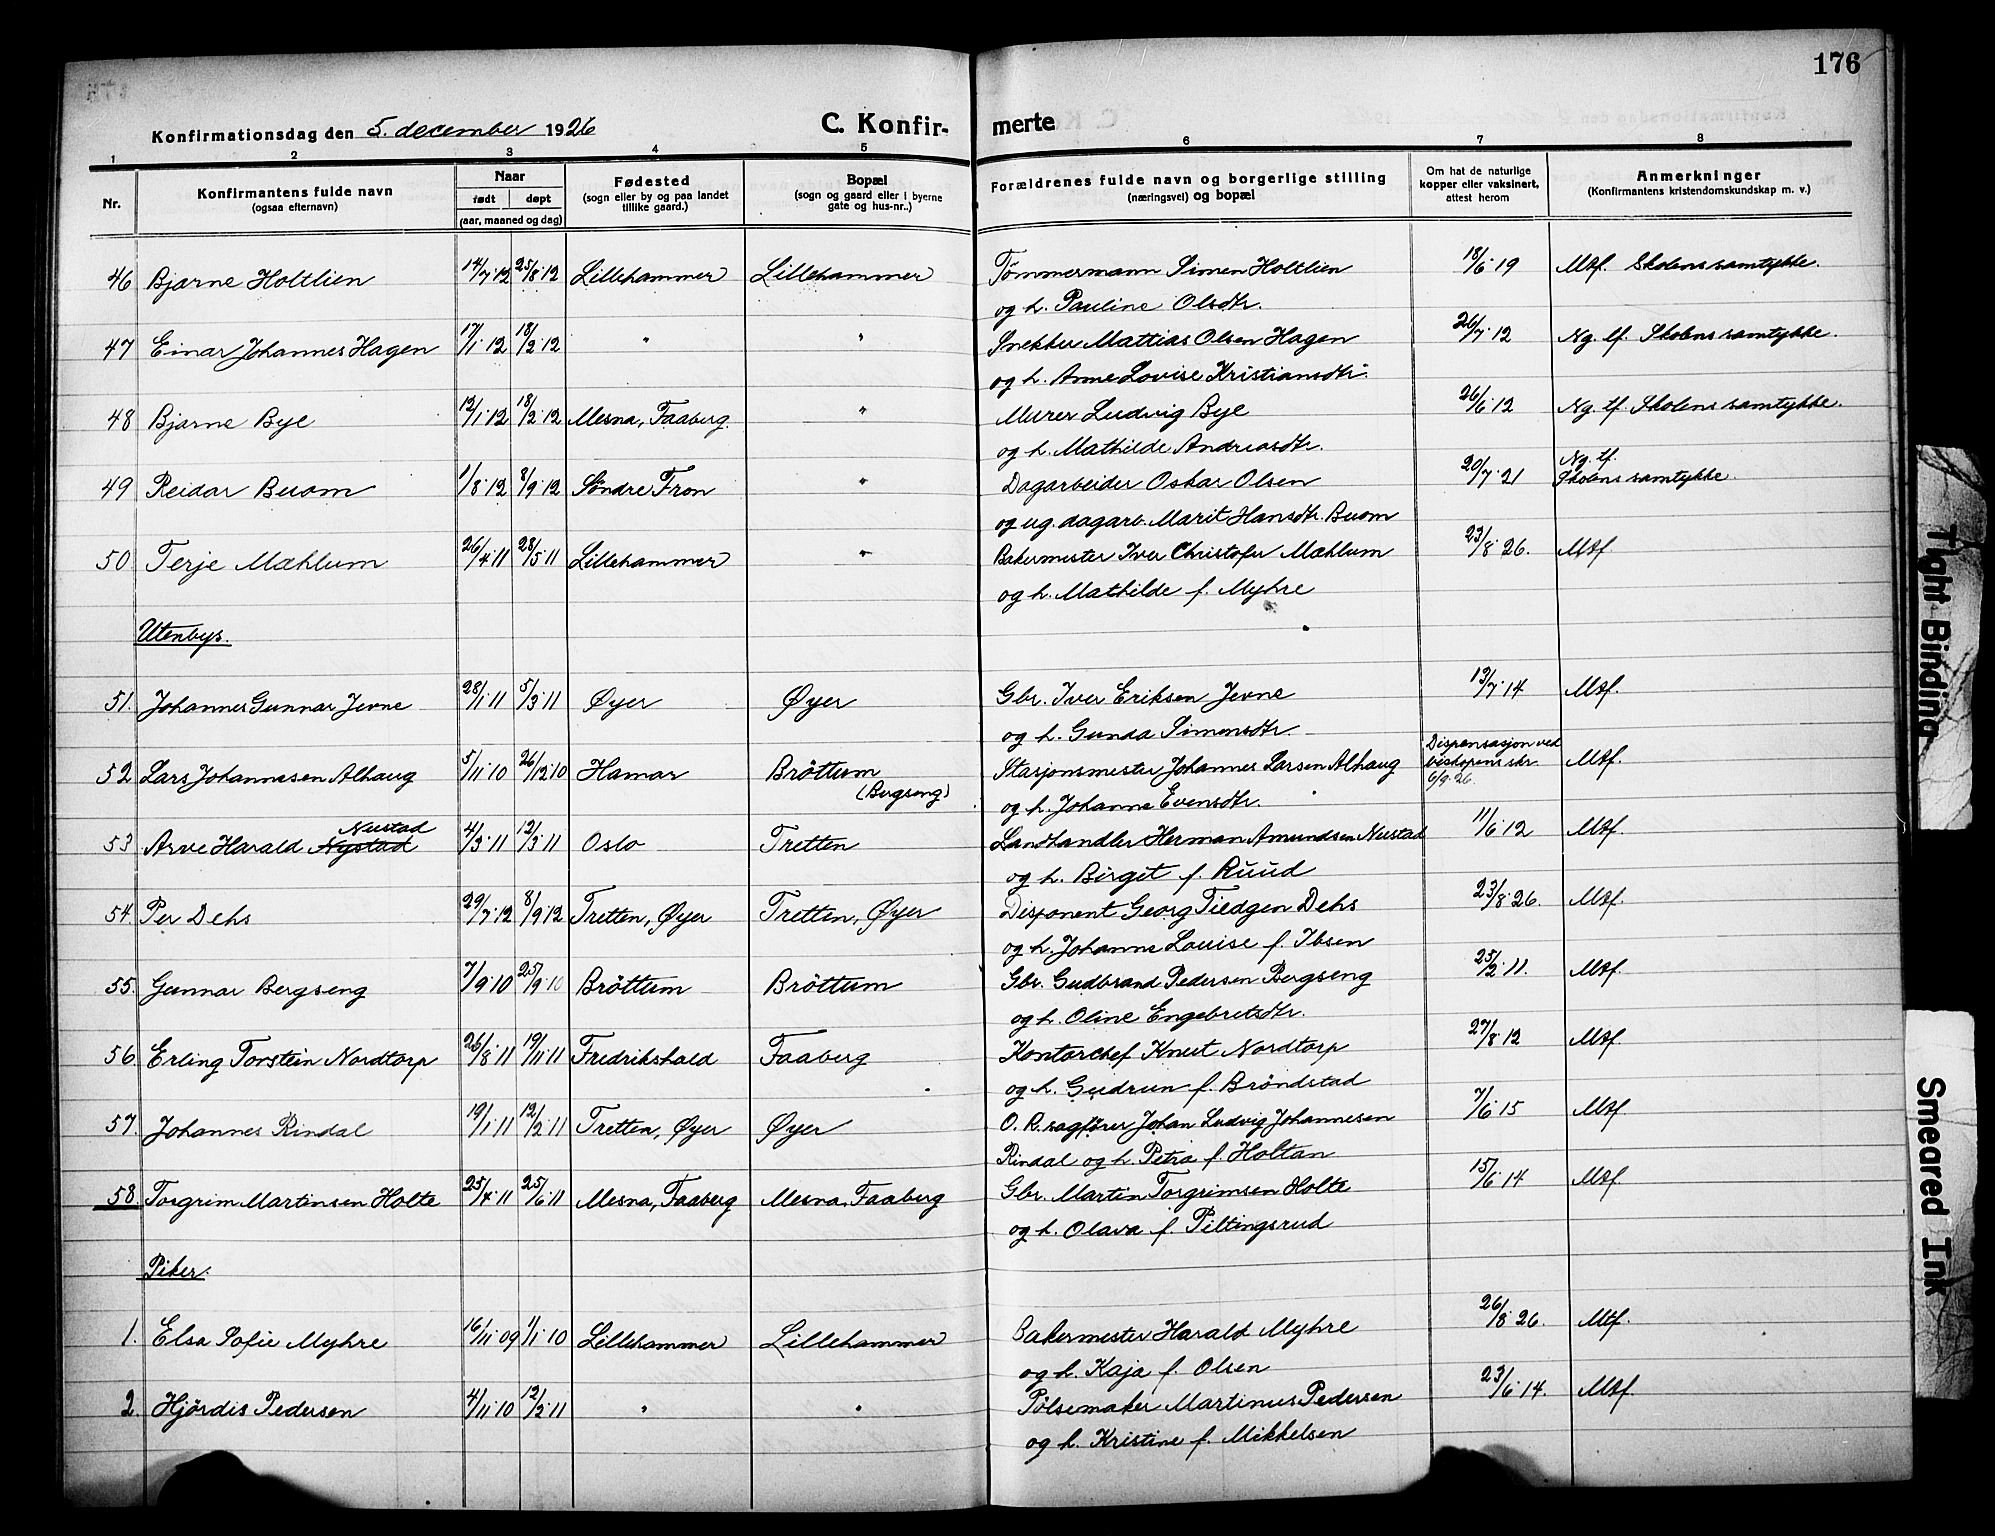 176
Konfirmationsdag den 5. december 1926
C. Konfir-
merte
1 2 3 4 5 6 7 8
Nr.
Konfirmantens fulde navn
(ogsaa efternavn)
Naar
født døpt
(aar, maaned og dag)
Fødested
(sogn eller by og paa landet
tillike gaard.)
Bopæl
(sogn og gaard eller i byerne
gate og hus-nr.)
Forældrenes fulde navn og borgerlige stilling
(næringsvei) og bopæl
Om hat de naturlige
kopper eller vaksinert,
attest herom
Anmerkninger
(Konfirmantens kristendomskundskap m. v.)
46 Bjarne Holtlien 14/7 12 25/8 12 Lillehammer Lillehammer Tømmermann Simen Holtlien 18/6 19 Mtf. Skolens samtykke.
og h. Pauline Olsdtr.
47 Einar Johannes Hagen 17/1 12 18/2 12 " " Snekker Mattias Olsen Hagen 26/7 12 Ng. tf. Skolens samtykke.
og h. Anne Lovise Kristiansdtr.
48 Bjarne Bye 12/1 12 18/2 12 Mesna, Faaberg. " Murer Ludvig Bye 26/6 12 Ng. tf. Skolens samtykke.
og h. Mathilde Andreasdtr.
49 Reidar Buom 1/8 12 8/9 12 Søndre Fron " Dagarbeider Oskar Olsen 20/7 21 Ng. tf.
Skolens samtykke
og ug. dagarb. Marit Hansdtr. Buom
50 Terje Mæhlum 26/4 11 28/5 11 Lillehammer " Bakermester Iver Christofer Mæhlum 23/8 26. Mtf.
og h. Mathilde f. Myhre
Utenbys.
51. Johannes Gunnar Jevne 28/1 11 5/3 11 Øyer Øyer Gbr. Iver Eriksen Jevne 13/7 14 Mtf.
og h. Gunda Simensdtr.
52 Lars Johannesen Alhaug 5/11 10 26/12 10 Hamar Brøttum Stasjonsmester Johannes Larsen Alhaug Dispensasjon ved
biskopens skr.
6/9 26. Mtf.
(Bergseng)
og h. Johanne Evensdtr.
Nustad
53 Arve Harald Nystad 4/3 11 12/3 11 Oslo Tretten Landhandler Herman Amundsen Nustad 11/6 12 Mtf.
og h. Birgit f. Ruud
54. Per Dehs 29/7 12 8/9 12 Tretten, Øyer Tretten, Øyer Disponent Georg Tiedgen Dehs 23/8 26. Mtf.
og h. Johanne Louise f. Ibsen
55. Gunnar Bergseng 7/9 10 25/9 10 Brøttum Brøttum Gbr. Gudbrand Pedersen Bergseng 25/2 11. Mtf.
og h. Oline Engebretsdtr.
56. Erling Torstein Nordtorp 26/8 11 19/11 11 Fredrikshald Faaberg Kontorchef Knut Nordtorp 27/8 12 Mtf
og h. Gudrun f. Brøndstad
57. Johannes Rindal 19/1 11 12/2 11 Tretten, Øyer Øyer O. R. sagfører Johan Ludvig Johannesen 7/6 15 Mtf
Rindal og h. Petra f. Holtan
58. Torgrim Martinsen Holte 25/4 11 25/6 11 Mesna, Faaberg Mesna, Faaberg Gbr. Martin Torgrimsen Holte 15/6 14 Mtf
og h. Olava f. Piltingsrud
Piker.
1. Elsa Sofie Myhre 16/11 09 1/1 10 Lillehammer Lillehammer Bakermester Harald Myhre 26/8 26. Mtf.
og h. Kaja f. Olsen
2. Hjørdis Pedersen 4/11 10 12/2 11 " " Pølsemaker Martinus Pedersen 23/6 14. Mtf
og h. Kristine f. Mikkelsen
Tight Binding
Smeared Ink